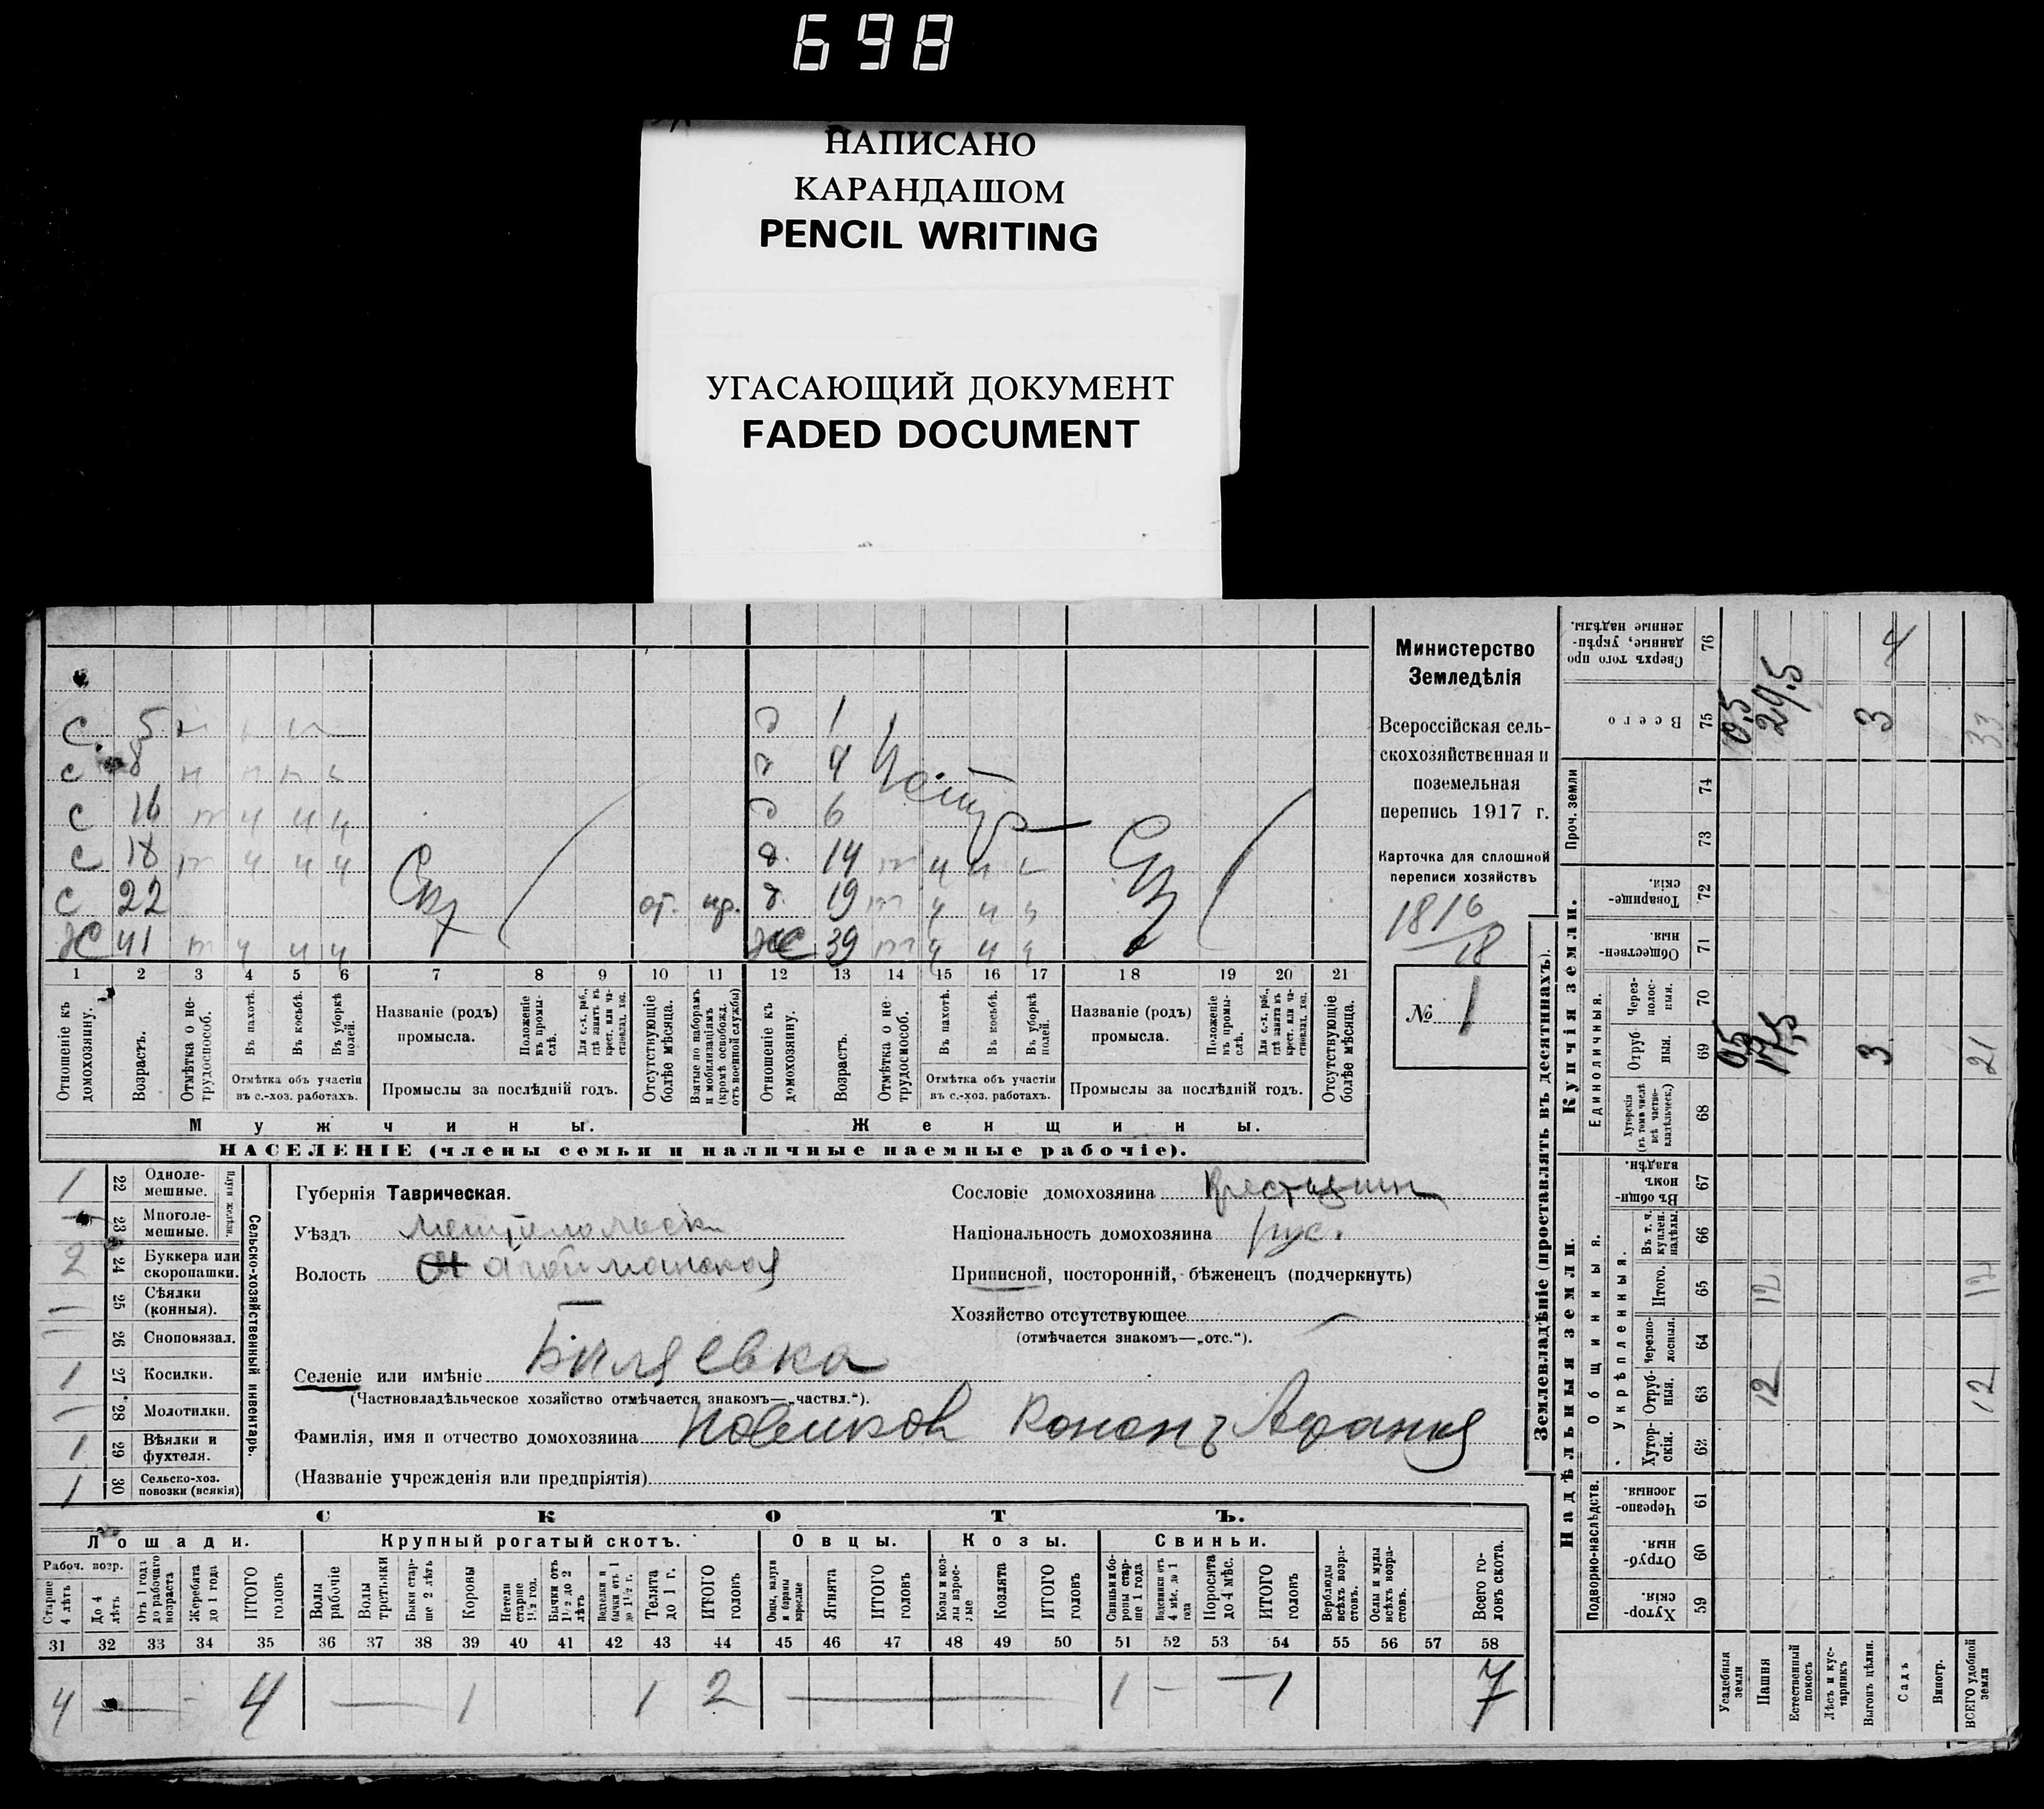 698
НАПИСАНО
КАРАНДАШОМ
PENCIL WRITING
УГАСАЮЩИЙ ДОКУМЕНТ
FADED DOCUMENT
С 5 н
С 8 н
С 16 т ч ч ч
С 18 т ч ч ч
С 22 от. пр.
Ж 41 т ч ч ч
д 1
д 4
д 6
д. 14
д. 19
Ж 39
1 2 3 4 5 6 7 8 9 10 11 12 13 14 15 16 17 18 19 20 21
Отношеніе къ домохозяину.
Возрастъ.
Отмѣтка о нетрудоспособ.
Въ пахотѣ.
Въ косьбѣ.
Въ уборкѣ полей.
Отмѣтка объ участіи въ с.-хоз. работахъ.
Названіе (родъ) промысла.
Положеніе въ промыслѣ.
Для с.-х. раб., гдѣ занятъ въ крест. или частновлад. хоз.
Промыслы за послѣдній годъ.
Отсутствующіе болѣе мѣсяца.
Взятые по наборамъ и мобилизаціямъ (кромѣ освобожд. отъ военной службы)
Отношеніе къ домохозяину.
Возрастъ.
Отмѣтка о нетрудоспособ.
Въ пахотѣ.
Въ косьбѣ.
Въ уборкѣ полей.
Отмѣтка объ участіи въ с.-хоз. работахъ.
Названіе (родъ) промысла.
Положеніе въ промыслѣ.
Для с.-х. раб., гдѣ занята въ крест. или частновлад. хоз.
Промыслы за послѣдній годъ.
Отсутствующіе болѣе мѣсяца.
Мужчины.
Женщины.
НАСЕЛЕНІЕ (члены семьи и наличные наемные рабочіе).
Министерство
Земледѣлія
Всероссійская сель-
скохозяйственная и
поземельная
перепись 1917 г.
Карточка для сплошной
переписи хозяйствъ
1816
18
№ 1
1 22 Однолемешные.
23 Многолемешные.
2 24 Буккера или скоропашки.
25 Сѣялки (конныя).
26 Сноповязал.
1 27 Косилки.
28 Молотилки.
1 29 Вѣялки и фухтеля.
1 30 Сельско-хоз. повозки (всякія)
Сельско-хозяйственный инвентарь.
Губернія Таврическая.
Уѣздъ Мелитопольск
Волость Агайманская
Селеніе или имѣніе Биляевка
(Частновладѣльческое хозяйство отмѣчается знакомъ—„частвл.“).
Фамилія, имя и отчество домохозяина Новиков Кононъ Афания
(Названіе учрежденія или предпріятія)
Сословіе домохозяина Крестьянин
Національность домохозяина рус.
Приписной, посторонній, бѣженецъ (подчеркнуть)
Хозяйство отсутствующее
(отмѣчается знакомъ—„отс.“).
СКОТЪ.
Лошади.
Крупный рогатый скотъ.
Овцы.
Козы.
Свиньи.
Рабоч. возр.
Старше 4 лѣтъ
До 4 лѣтъ
Отъ 1 года до рабочаго возраста
Жеребята до 1 года
ИТОГО головъ
Волы рабочіе
Волы третьяки
Быки старше 2 лѣтъ
Коровы
Нетели старше 1½ год.
Бычки отъ 1½ до 2 лѣтъ
Телки и бычки отъ 1 до 1½ г.
Телята до 1 г.
ИТОГО головъ
Овцы, валухи и бараны взрослые
Ягнята
ИТОГО головъ
Козы и козлы взрослые
Козлята
ИТОГО головъ
Свиньи и боровы старше 1 года
Подсвинки отъ 4 мѣс. до 1 года
Поросята до 4 мѣс.
ИТОГО головъ
Верблюды всѣхъ возрастовъ.
Ослы и мулы всѣхъ возрастовъ.
Всего головъ скота.
31 32 33 34 35 36 37 38 39 40 41 42 43 44 45 46 47 48 49 50 51 52 53 54 55 56 57 58
4 — - 4 — 1 1 2 — 1 — 1 7
Землевладѣніе (проставлять въ десятинахъ).
Надѣльныя земли.
Купчія земли.
Проч. земли
Подворно-наслѣдств.
Общинныя.
Укрѣпленныя.
Единоличныя.
Хуторскія 59
Отрубныя. 60
Черезполосныя. 61
Хуторскія. 62
Отрубныя. 63
Черезполосныя. 64
Итого. 65
Въ т. ч. куплен. надѣлы. 66
Въ общинномъ владѣн. 67
Хуторскія (въ томъ числѣ всѣ частновладѣльческ.) 68
Отрубныя. 69
Черезполосныя. 70
Общественныя. 71
Товарищескія. 72
73
74
Всего 75
Сверхъ того проданные, укрѣпленные надѣлы. 76
Усадебныя земли 0,5 0,5
Пашня 12 12 17,5 29,5
Естественный покосъ
Лѣсъ и кустарникъ
Выгонъ цѣлин. 3 3 4
Садъ
Виногр.
ВСЕГО удобной земли 12 12 21 33